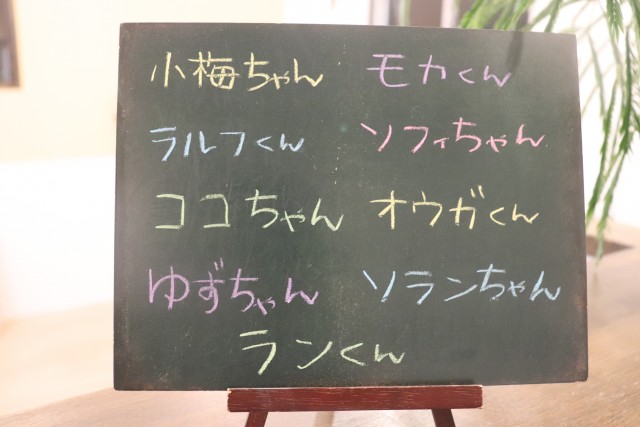 小梅ちゃん モカくん
ラルフくん ソフィちゃん
ココちゃん オウガくん
ゆずちゃん ソランちゃん
ランくん